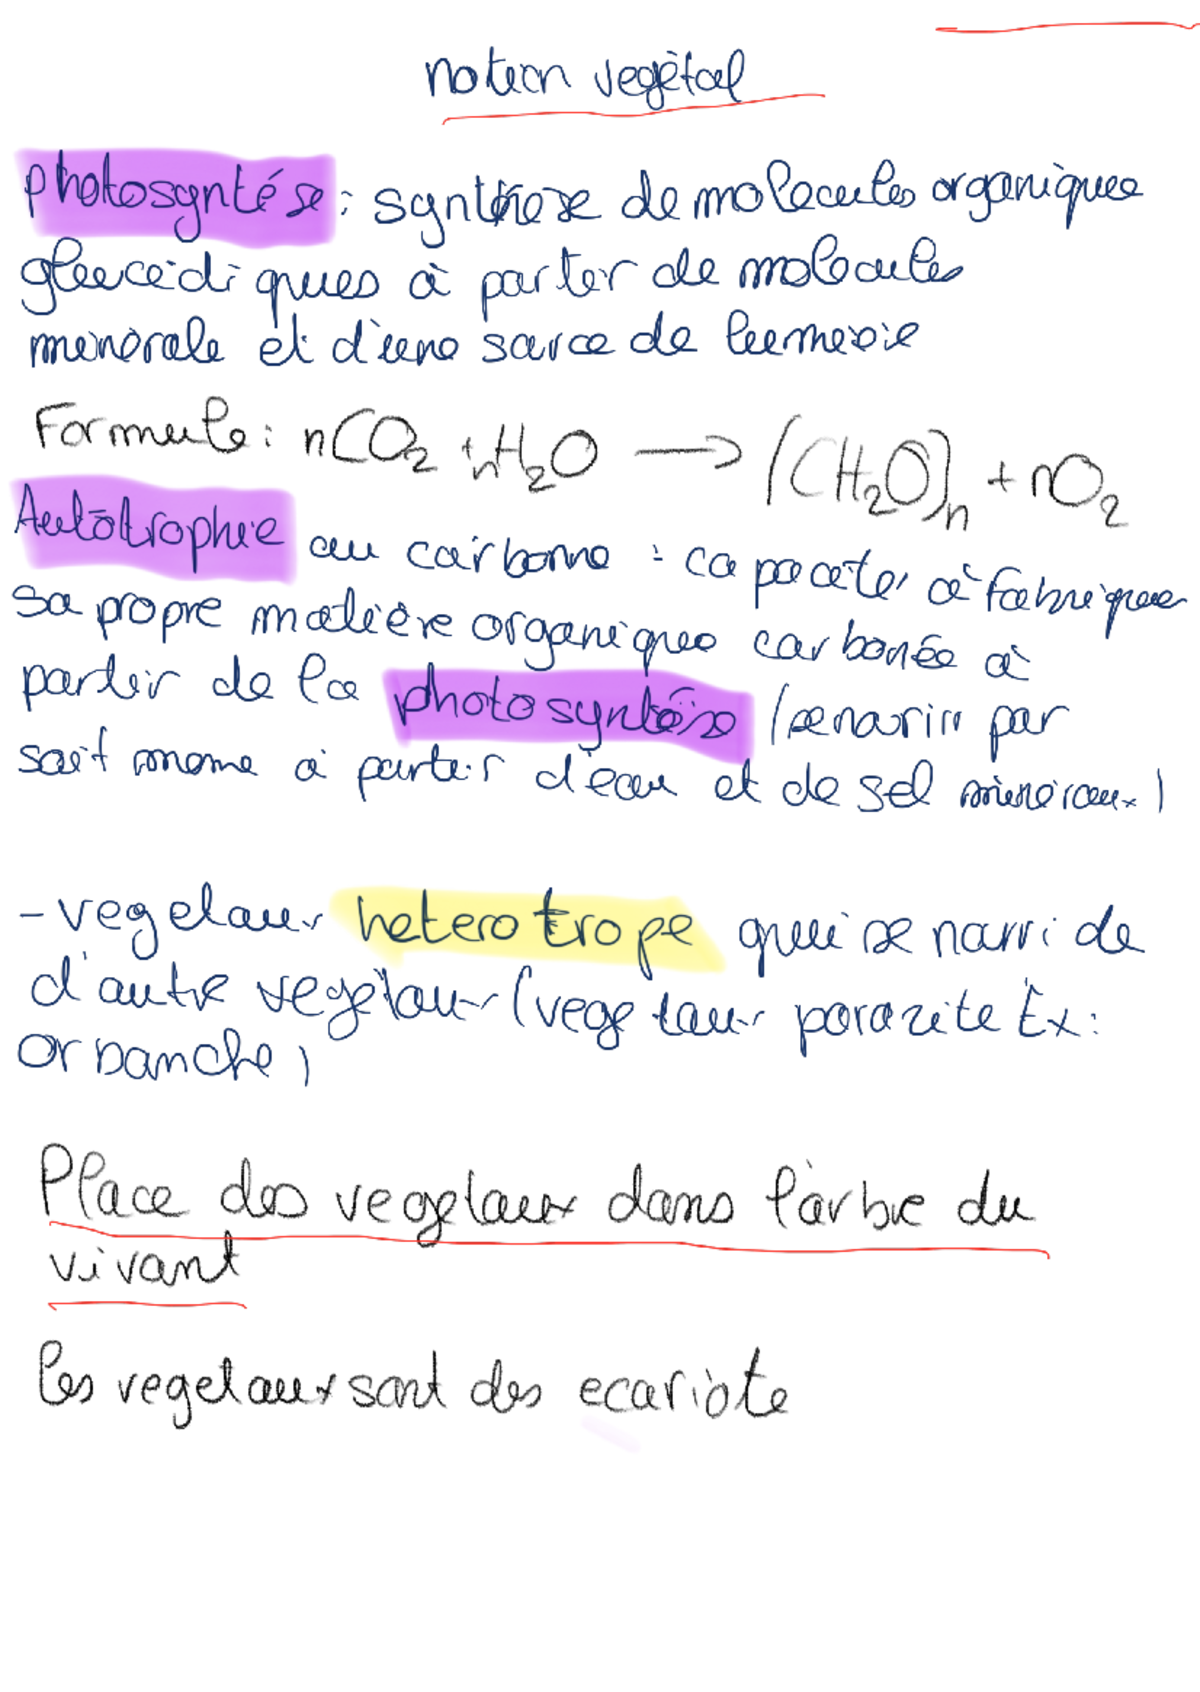 notion vegétal
photosyntése : synthèse de molecules organiques
glucidiques à partir de molecules
minérale et d'une source de lumière
Formule : nCO₂ + nH₂O → (CH₂O)n + nO₂
Autotrophie au carbone : capacité à fabriquer
sa propre matière organique carbonée à
partir de la photosyntése (se nourir par
soit meme à partir d'eau et de sel mineraux)
- vegetaux heterotrope qui se nourri de
d'autre vegetaux (vegetaux parazite Ex :
Orbanche)
Place des vegetaux dans l'arbre du
vivant
les vegetaux sont des ecariote